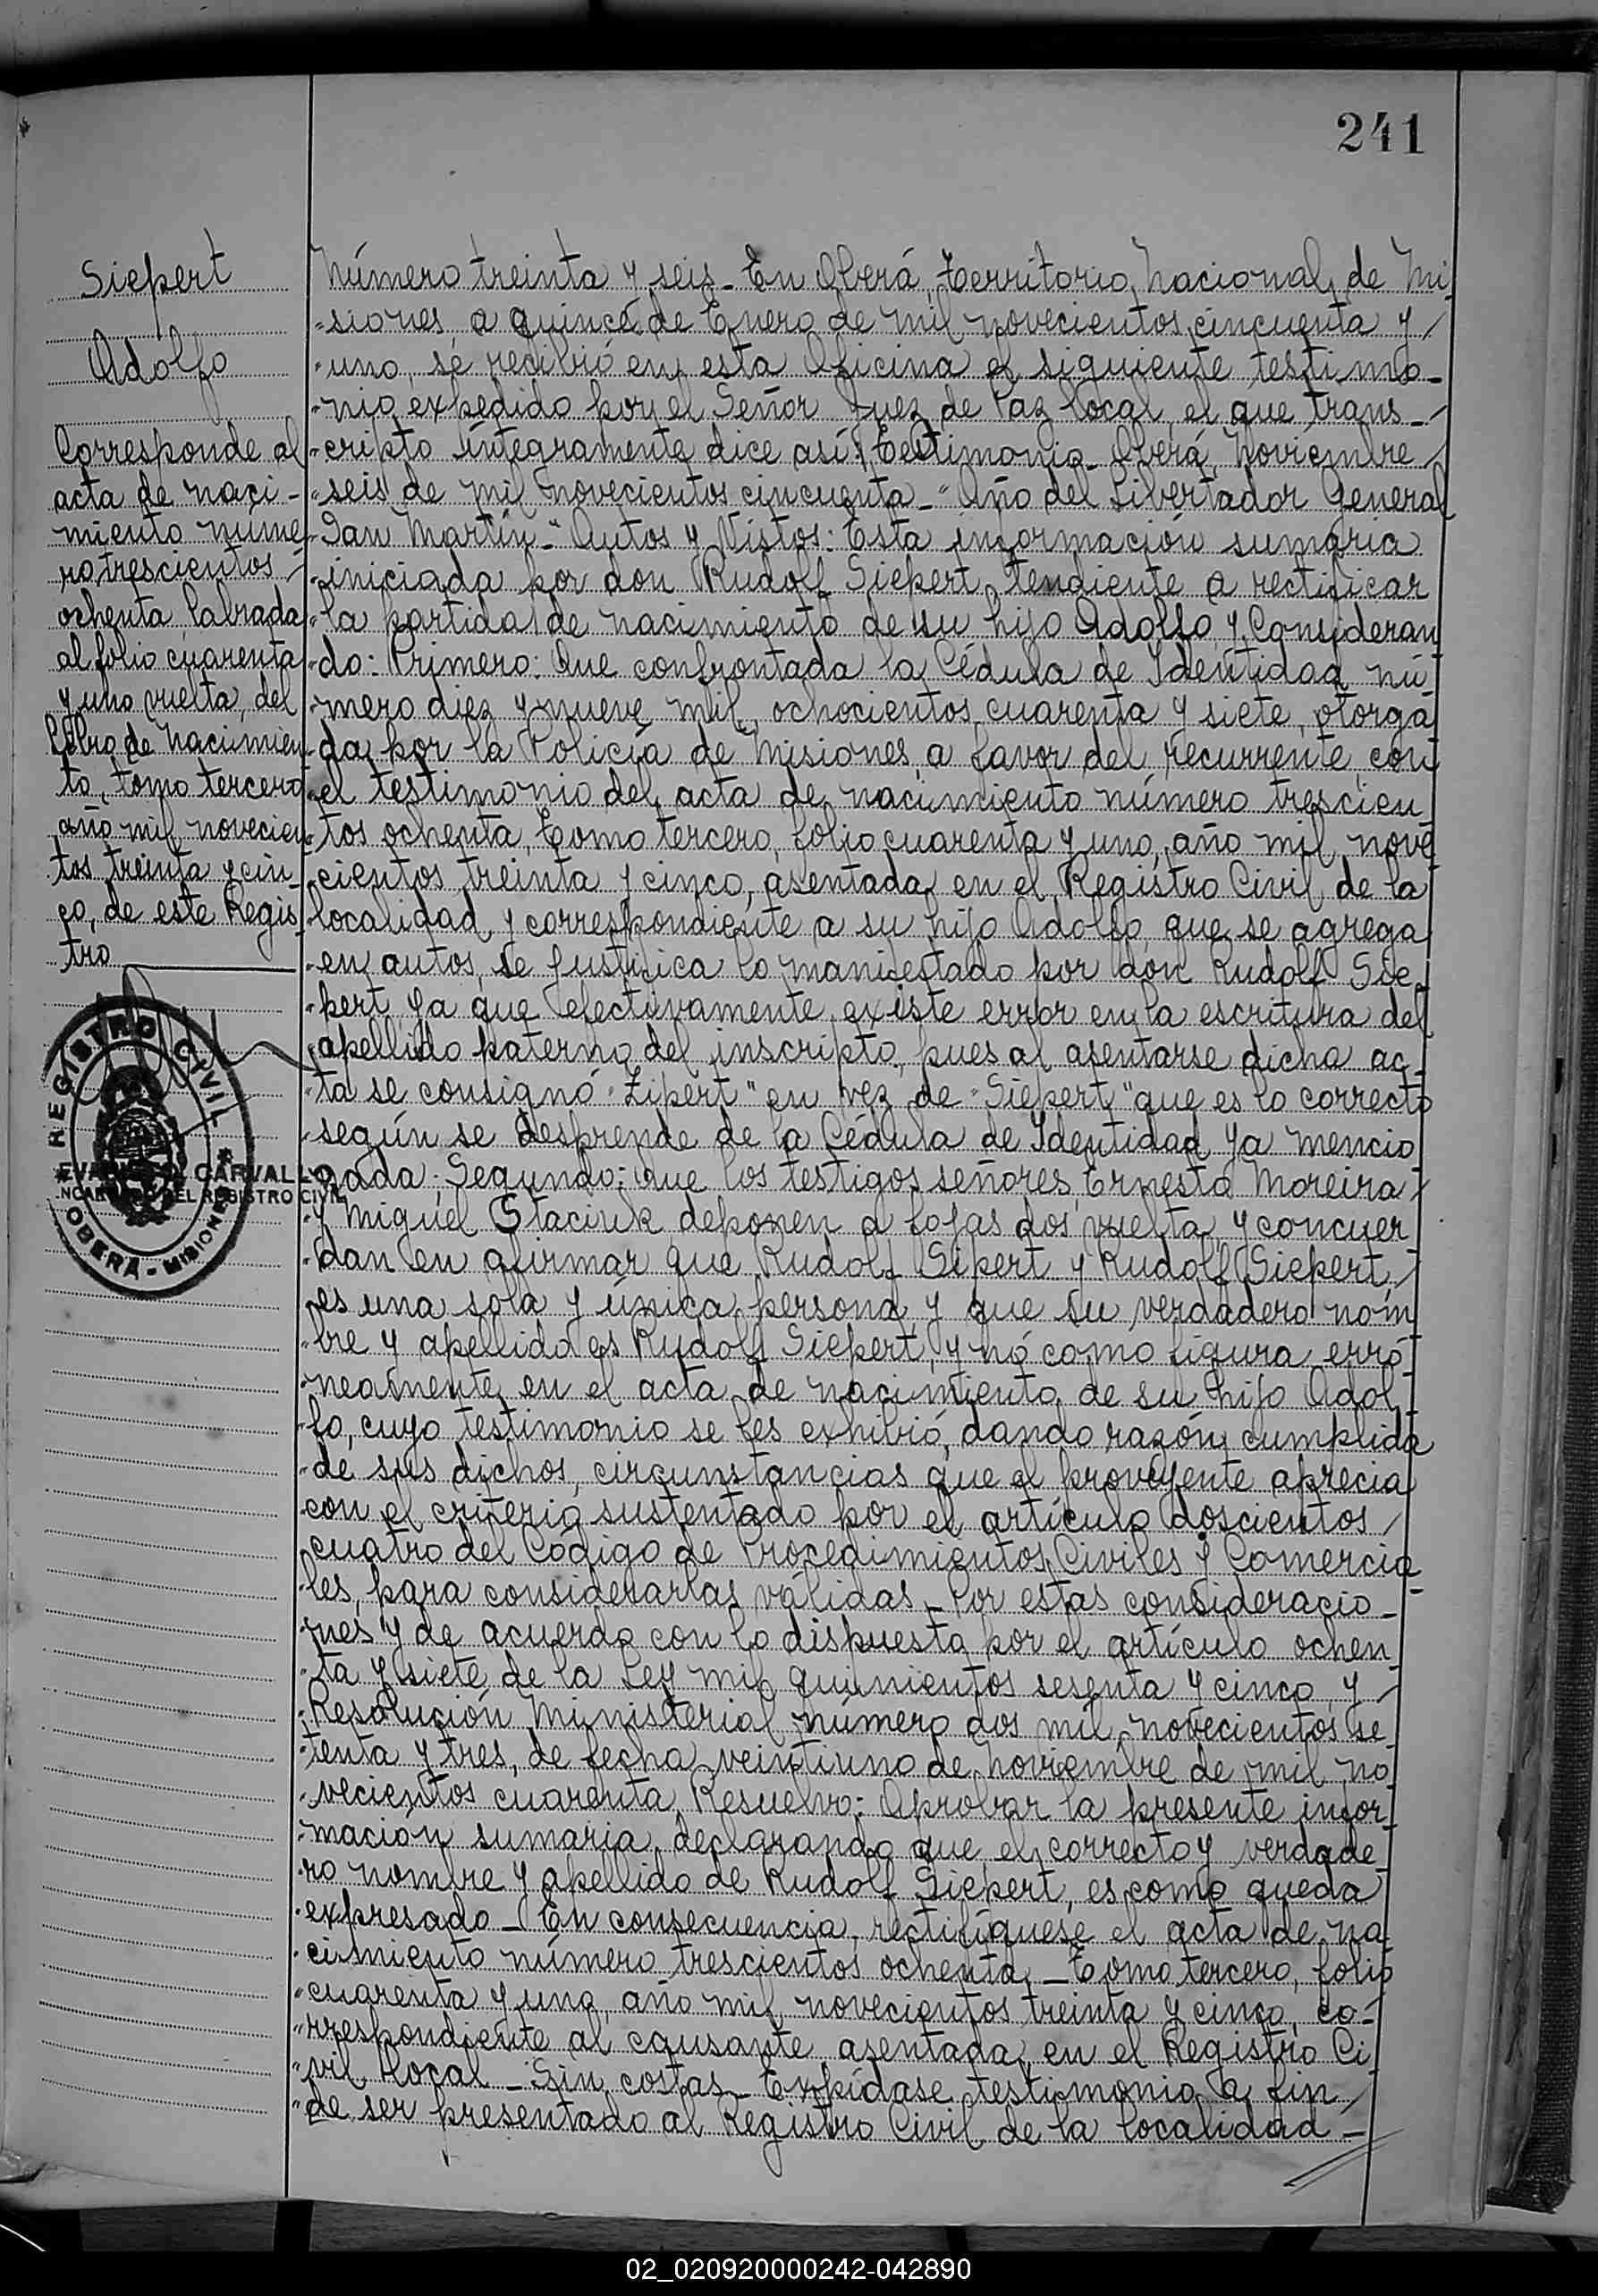 241
Siepert
Adolfo
Corresponde al
acta de naci-
miento núme
ro trescientos
ochenta, labrada
al folio cuarenta
y uno vuelta, del
Libro de Nacimien
to, tomo tercero
año mil novecien
tos treinta y cin-
co, de este Regis-
tro
REGISTRO CIVIL
CARVALLO
DEL REGISTRO CIVIL
OBERÁ - MISIONES
Número treinta y seis - En Oberá, Territorio Nacional de Mi
siones, a quince de Enero de mil novecientos cincuenta y
uno, se recibió en esta Oficina el siguiente testimo-
nio expedido por el Señor Juez de Paz local, el que trans-
cripto íntegramente dice así: Testimonio - Oberá, Noviembre
seis de mil novecientos cincuenta - "Año del Libertador General
San Martín" - Autos y Vistos: Esta información sumaria
iniciada por don Rudolf Siepert tendiente a rectificar
la partida de nacimiento de su hijo Adolfo, y Consideran
do: Primero: Que confrontada la Cédula de Identidad nú-
mero diez y nueve mil, ochocientos cuarenta y siete, otorga
da por la Policía de Misiones, a favor del recurrente con
el testimonio del acta de nacimiento número trescien
tos ochenta, Tomo tercero, folio cuarenta y uno, año mil nove
cientos treinta y cinco, asentada en el Registro Civil de la
localidad y correspondiente a su hijo Adolfo, que se agrega
en autos, se justifica lo manifestado por don Rudolf Sie-
pert, ya que efectivamente existe error en la escritura del
apellido paterno del inscripto, pues al asentarse dicha ac-
ta se consignó "Zipert" en vez de "Siepert" que es lo correcto
según se desprende de la Cédula de Identidad ya mencio
nada; Segundo: Que los testigos señores Ernesto Moreira
y Miguel Staciuk deponen a fojas dos vuelta, y concuer
dan en afirmar que Rudolf Sipert y Rudolf Siepert,
es una sola y única persona, y que su verdadero nom
bre y apellido es Rudolf Siepert, y nó como figura erró
neamente en el acta de nacimiento de su hijo Adol
fo, cuyo testimonio se les exhibió, dando razón cumplida
de sus dichos, circunstancias que el proveyente aprecia
con el criterio sustentado por el artículo doscientos
cuatro del Código de Procedimientos Civiles y Comercia-
les, para considerarlas válidas - Por estas consideracio-
nes y de acuerdo con lo dispuesto por el artículo ochen
ta y siete de la Ley mil quinientos sesenta y cinco, y
Resolución Ministerial número dos mil novecientos se-
tenta y tres, de fecha veintiuno de Noviembre de mil no
vecientos cuarenta, Resuelvo: Aprobar la presente infor
mación sumaria, declarando que el correcto y verdade
ro nombre y apellido de Rudolf Siepert, es como queda
expresado - En consecuencia, rectifíquese el acta de na
cimiento número trescientos ochenta - Tomo tercero, folio
cuarenta y uno, año mil novecientos treinta y cinco, co-
rrespondiente al causante, asentada en el Registro Ci
vil local - Sin costas - Expídase testimonio a fin
de ser presentado al Registro Civil de la localidad -
02_020920000242-042890